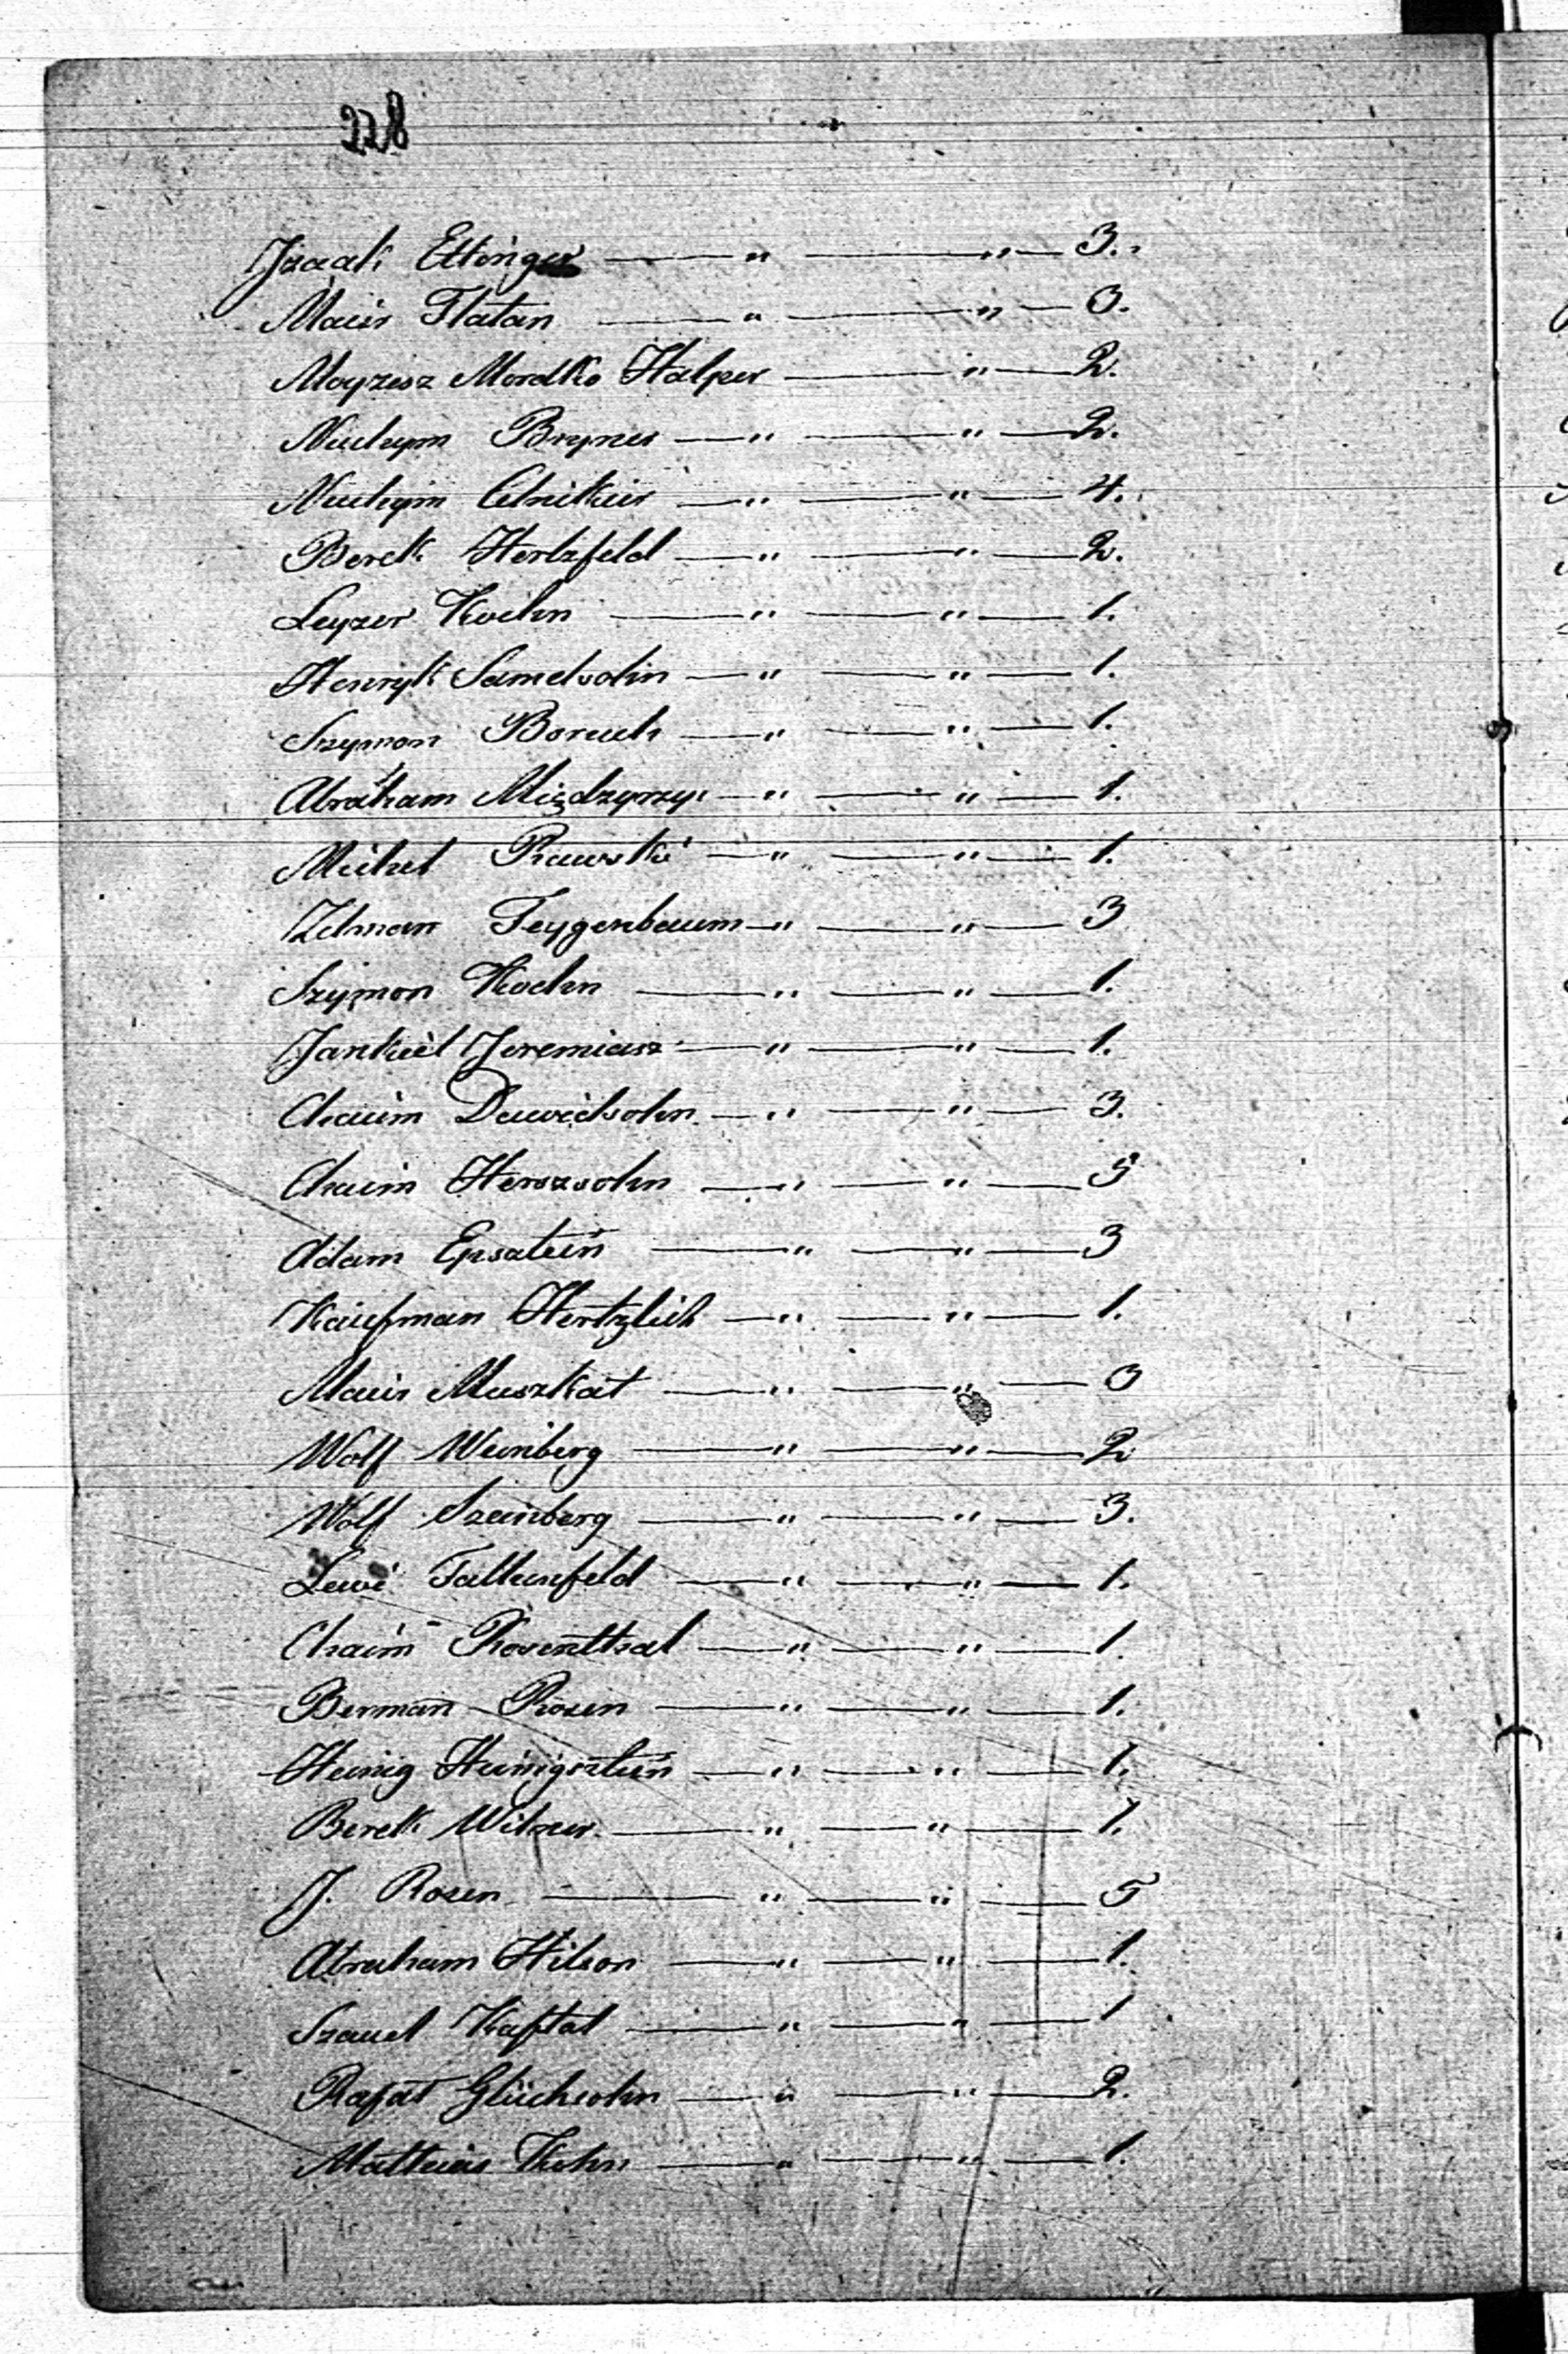 228
Izaak Ettinger — " — " — 3.
Maier Flatau — " — " — 3.
Moyzesz Mordko Halper — " — 2.
Nuchym Bryner — " — " — 2.
Nuchym Celnikier — " — " — 4.
Berek Hertzfeld — " — " — 2.
Leyzer Koehn — " — " — 1.
Henryk Samelsohn — " — " — 1.
Szymon Boruch — " — " — 1.
Abraham Międzyrzyc — " — " — 1.
Michel Rawski — " — " — 1.
Zelman Feygenbaum — " — " — 3
Szymon Koehn — " — " — 1.
Jankiel Jeremiasz — " — " — 1.
Chaim Dawidsohn — " — " — 3.
Chaim Herszsohn — " — " — 3
Adam Epsztein — " — " — 3
Kaufman Hertzlich — " — " — 1.
Maier Muszkat — " — " — 3
Wolf Weinberg — " — " — 2
Wolf Szeinberg — " — " — 3.
Lewi Falkenfeld — " — " — 1.
Chaim Rosenthal — " — " — 1.
Berman Rosen — " — " — 1.
Heinig Heinigsztein — " — " — 1.
Berek Wilner — " — " — 1.
J. Rosen — " — " — 5
Abraham Hilson — " — " — 1.
Szauel Kaftal — " — " — 1
Rafał Glücksohn — " — " — 2.
Matteias Kohn — " — " — 1.